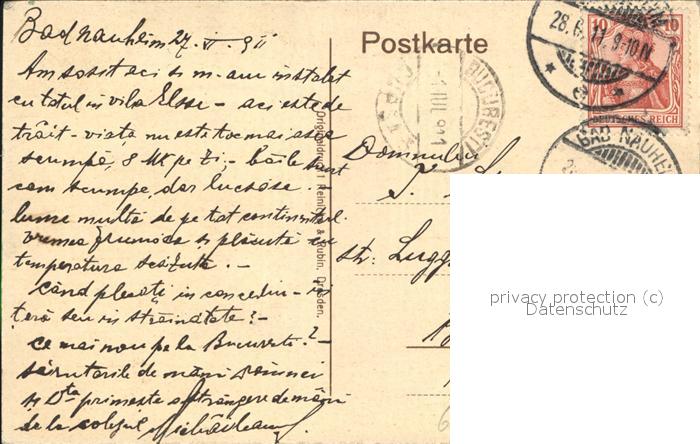 Bad Nauheim 27. VI. 911
Am sosit aci și m-am instalat
cu totul in vila Else - aci este de
trăit - viața nu este tocmai așa
scumpă, 8 Mk pe zi, - băile sunt
cam scumpe, dar lucsoase. -
lume multă de pe tot continentul.
Vremea frumoasă și plăcută cu
temperatura scăzută. -
Când plecați in concediu - in
țară sau in străinătate? -
Ce mai nou pe la București? -
Sărutările de mâni Doamnei
și Dta primește o strângere de mâni
de la colegul
Postkarte
Domnului
str.
BUCURESTI
1 IUL 911
28.6.11. 9-10N
10
DEUTSCHES REICH
BAD NAUHE
Rubin, Dresden.
privacy protection (c)
Datenschutz